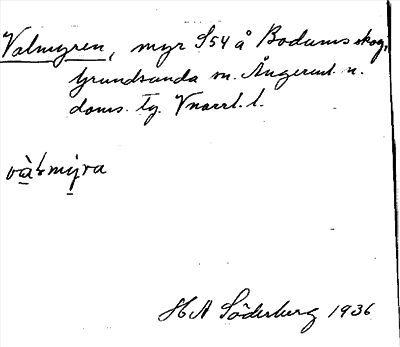 Valmyren, myr S54 å Bodums skog,
Grundsunda sn. Ångerml. n.
doms. tg. Vnorrl. l.
và̱ḷmy̱ra
H A Söderberg 1936